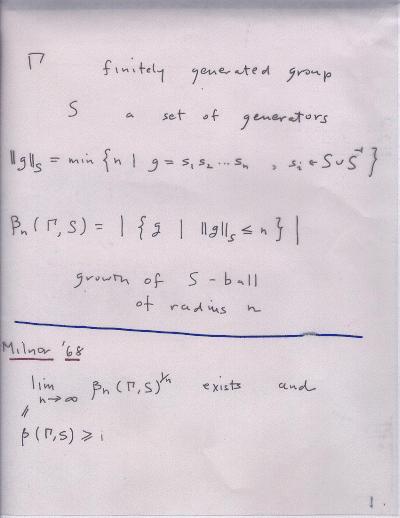 Γ finitely generated group
S a set of generators
‖g‖_S = min { n | g = s₁ s₂ ⋯ sₙ , sᵢ ∈ S ∪ S⁻¹ }
βₙ(Γ, S) = | { g | ‖g‖_S ≤ n } |
growth of S-ball
of radius n
Milnor '68
lim n→∞ βₙ(Γ, S)^{1/n} exists and
//
β(Γ, S) ≥ 1
1